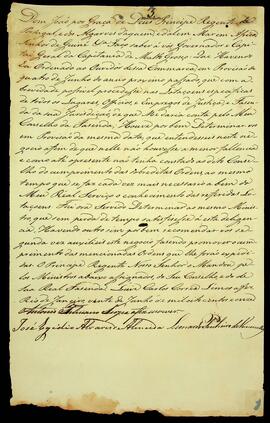 Dom João por Graça de Deus Principe Regente de
Portugal e dos Algarves daquem e dalem Mar em Africa
Senhor de Guiné Faço saber a vós Governador e Capi-
General da Capitania de Matto Grosso: Que Havendo
Eu Ordenado ao Ouvidor dessa Comarca em
de quatro de Junho do anno proximo passado, que com a
vidade possivel procedesse nas Lotaçoens especifica
de todos os Lugares, Officios, e Empregos de Justiça, e Fazen-
da da sua e que Me désse conta pelo Conse-
lho da Fazenda, Houve por bem Determinar
em Provisão da mesma data que entendesseis neste ne-
gocio afim de que nelle não houvesse a menor fallencia
e como até aprezente não tenha constado neste Conse-
lho do cumprimento das sobreditas Ordens, ao mesmo
tempo que se faz cada vez mais necessario a bem do
Meu Real Serviço o conhecimento das referidas Lo-
taçoens: Fui ora Servido Determinar ao mesmo Minis-
tro, que sem perda de tempo satisfizesse a esta deligen-
cia. Havendo outro sim por bem recomendar vos se-
gunda vez auxilieis este negocio fazendo promover o cum-
primento das mencionadas Ordens que lhe forão expedi-
das. O Principe Regente Nosso Senhor o Mandou pe-
los Ministros abaixo assignados, do Seu Conselho e do de
Sua Real Fazenda. Luiz Carlos Corrêa Lemos a fez
Rio de Janeiro vinte de Junho de mil oito centos e onze
Antonio Feliciano Serpa a fez escrever.
José Egydio Alvares de Almeida